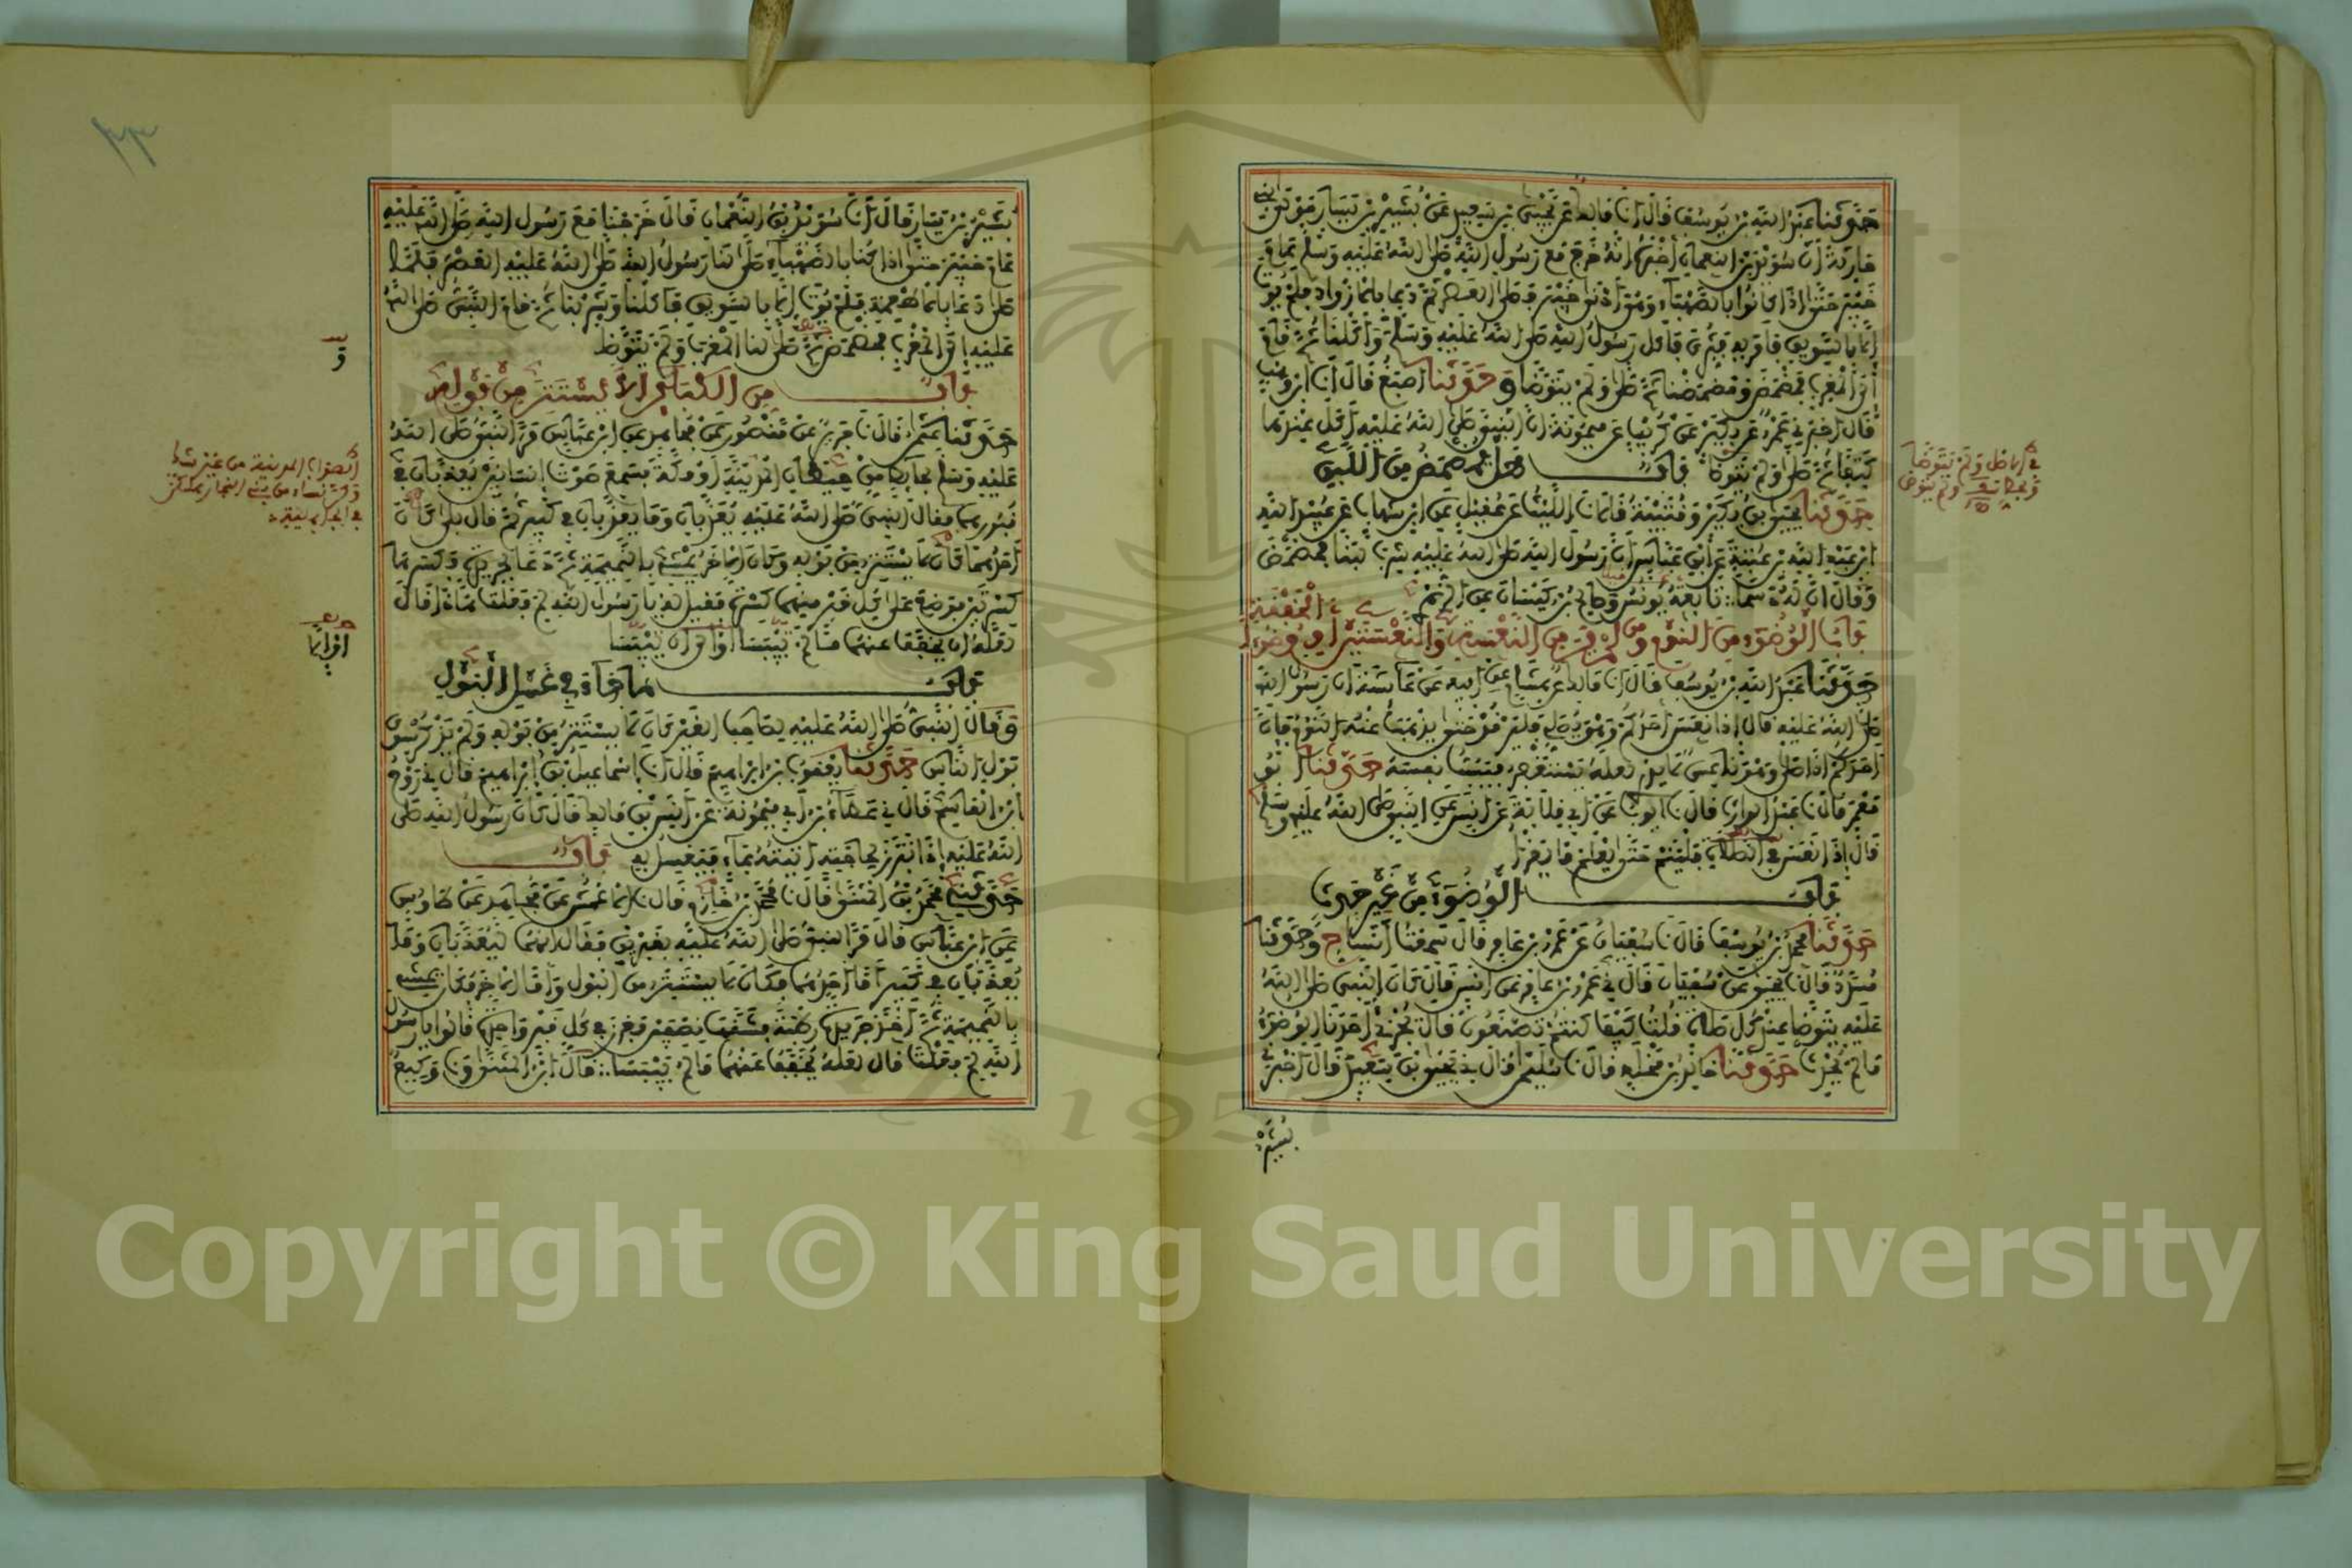 حدثنا عبد الله بن يوسف قال انا مالك عن يحيى بن سعيد عن بشير بن يسار مولى بني
حارثة أن سويد بن النعمان أخبره أنه خرج مع رسول الله صلى الله عليه وسلم عام
خيبر حتى إذا كانوا بالصهباء وهي أدنى خيبر فصلى العصر ثم دعا بالأزواد فلم يوت
إلا بالسويق فأمر به فثري فأكل رسول الله صلى الله عليه وسلم وأكلنا ثم قام
إلى المغرب فمضمض ومضمضنا ثم صلى ولم يتوضأ وحدثنا أصبغ قال أنا ابن وهب
قال أخبرني عمرو عن بكير عن كريب عن ميمونة أن النبي صلى الله عليه أكل عندها
كتفا ثم صلى ولم يتوضأ باب هل يمضمض من اللبن
حدثنا يحيى بن بكير وقتيبة قالا نا الليث عن عقيل عن ابن شهاب عن عبيد الله
ابن عبد الله بن عتبة عن ابن عباس أن رسول الله صلى الله عليه شرب لبنا فمضمض
وقال إن له دسما تابعه يونس وصالح بن كيسان عن الزهري
باب الوضوء من النوم ومن لم ير من النعسة والنعستين أو الخفقة وضوءا
حدثنا عبد الله بن يوسف قال أنا مالك عن هشام عن أبيه عن عائشة أن رسول الله
صلى الله عليه قال إذا نعس أحدكم وهو يصلي فليرقد حتى يذهب عنه النوم فإن
أحدكم إذا صلى وهو ناعس لا يدري لعله يستغفر فيسب نفسه حدثنا أبو
معمر قال نا عبد الوارث قال نا أيوب عن أبي قلابة عن أنس عن النبي صلى الله عليه وسلم
قال إذا نعس في الصلاة فلينم حتى يعلم ما يقرأ
باب الوضوء من غير حدث
حدثنا محمد بن يوسف قال نا سفيان عن عمرو بن عامر قال سمعت أنسا ح وحدثنا
مسدد قال نا يحيى عن سفيان قال ني عمرو بن عامر عن أنس قال كان النبي صلى الله
عليه يتوضأ عند كل صلاة قلت كيف كنتم تصنعون قال يجزئ أحدنا الوضوء
ما لم يحدث حدثنا خالد بن مخلد قال نا سليمان قال ني يحيى بن سعيد قال أخبرني
بشير
بشير بن يسار قال أنا سويد بن النعمان قال خرجنا مع رسول الله صلى الله عليه
عام خيبر حتى إذا كنا بالصهباء صلى لنا رسول الله صلى الله عليه العصر فلما
صلى دعا بالأطعمة فلم يوت إلا بالسويق فأكلنا وشربنا ثم قام النبي صلى الله
عليه إلى المغرب فمضمض ثم صلى لنا المغرب ولم يتوضأ
باب من الكبائر ألا يستتر من بوله
حدثنا عثمان قال نا جرير عن منصور عن مجاهد عن ابن عباس قال مر النبي صلى الله
عليه وسلم بحائط من حيطان المدينة أو مكة فسمع صوت إنسانين يعذبان في
قبورهما فقال النبي صلى الله عليه يعذبان وما يعذبان في كبير ثم قال بلى كان
أحدهما لا يستتر من بوله وكان الآخر يمشي بالنميمة ثم دعا بجريدة فكسرها
كسرتين فوضع على كل قبر منهما كسرة فقيل له يا رسول الله لم فعلت هذا قال
لعله أن يخفف عنهما ما لم تيبسا أو إلى أن ييبسا
باب ما جاء في غسل البول
وقال النبي صلى الله عليه لصاحب القبر كان لا يستتر من بوله ولم يذكر سوى
بول الناس حدثنا يعقوب بن إبراهيم قال نا إسماعيل بن إبراهيم قال ني روح
ابن القاسم قال ني عطاء بن أبي ميمونة عن أنس بن مالك قال كان رسول الله صلى
الله عليه إذا تبرز لحاجته أتيته بماء فيغسل به باب
حدثني محمد بن المثنى قال نا محمد بن خازم قال نا الأعمش عن مجاهد عن طاوس
عن ابن عباس قال مر النبي صلى الله عليه بقبرين فقال إنهما ليعذبان وما
يعذبان في كبير أما أحدهما فكان لا يستتر من البول وأما الآخر فكان يمشي
بالنميمة ثم أخذ جريدة رطبة فشقها نصفين فغرز في كل قبر واحدة قالوا يا رسول
الله لم فعلت قال لعله يخفف عنهما ما لم ييبسا قال ابن المثنى ونا وكيع